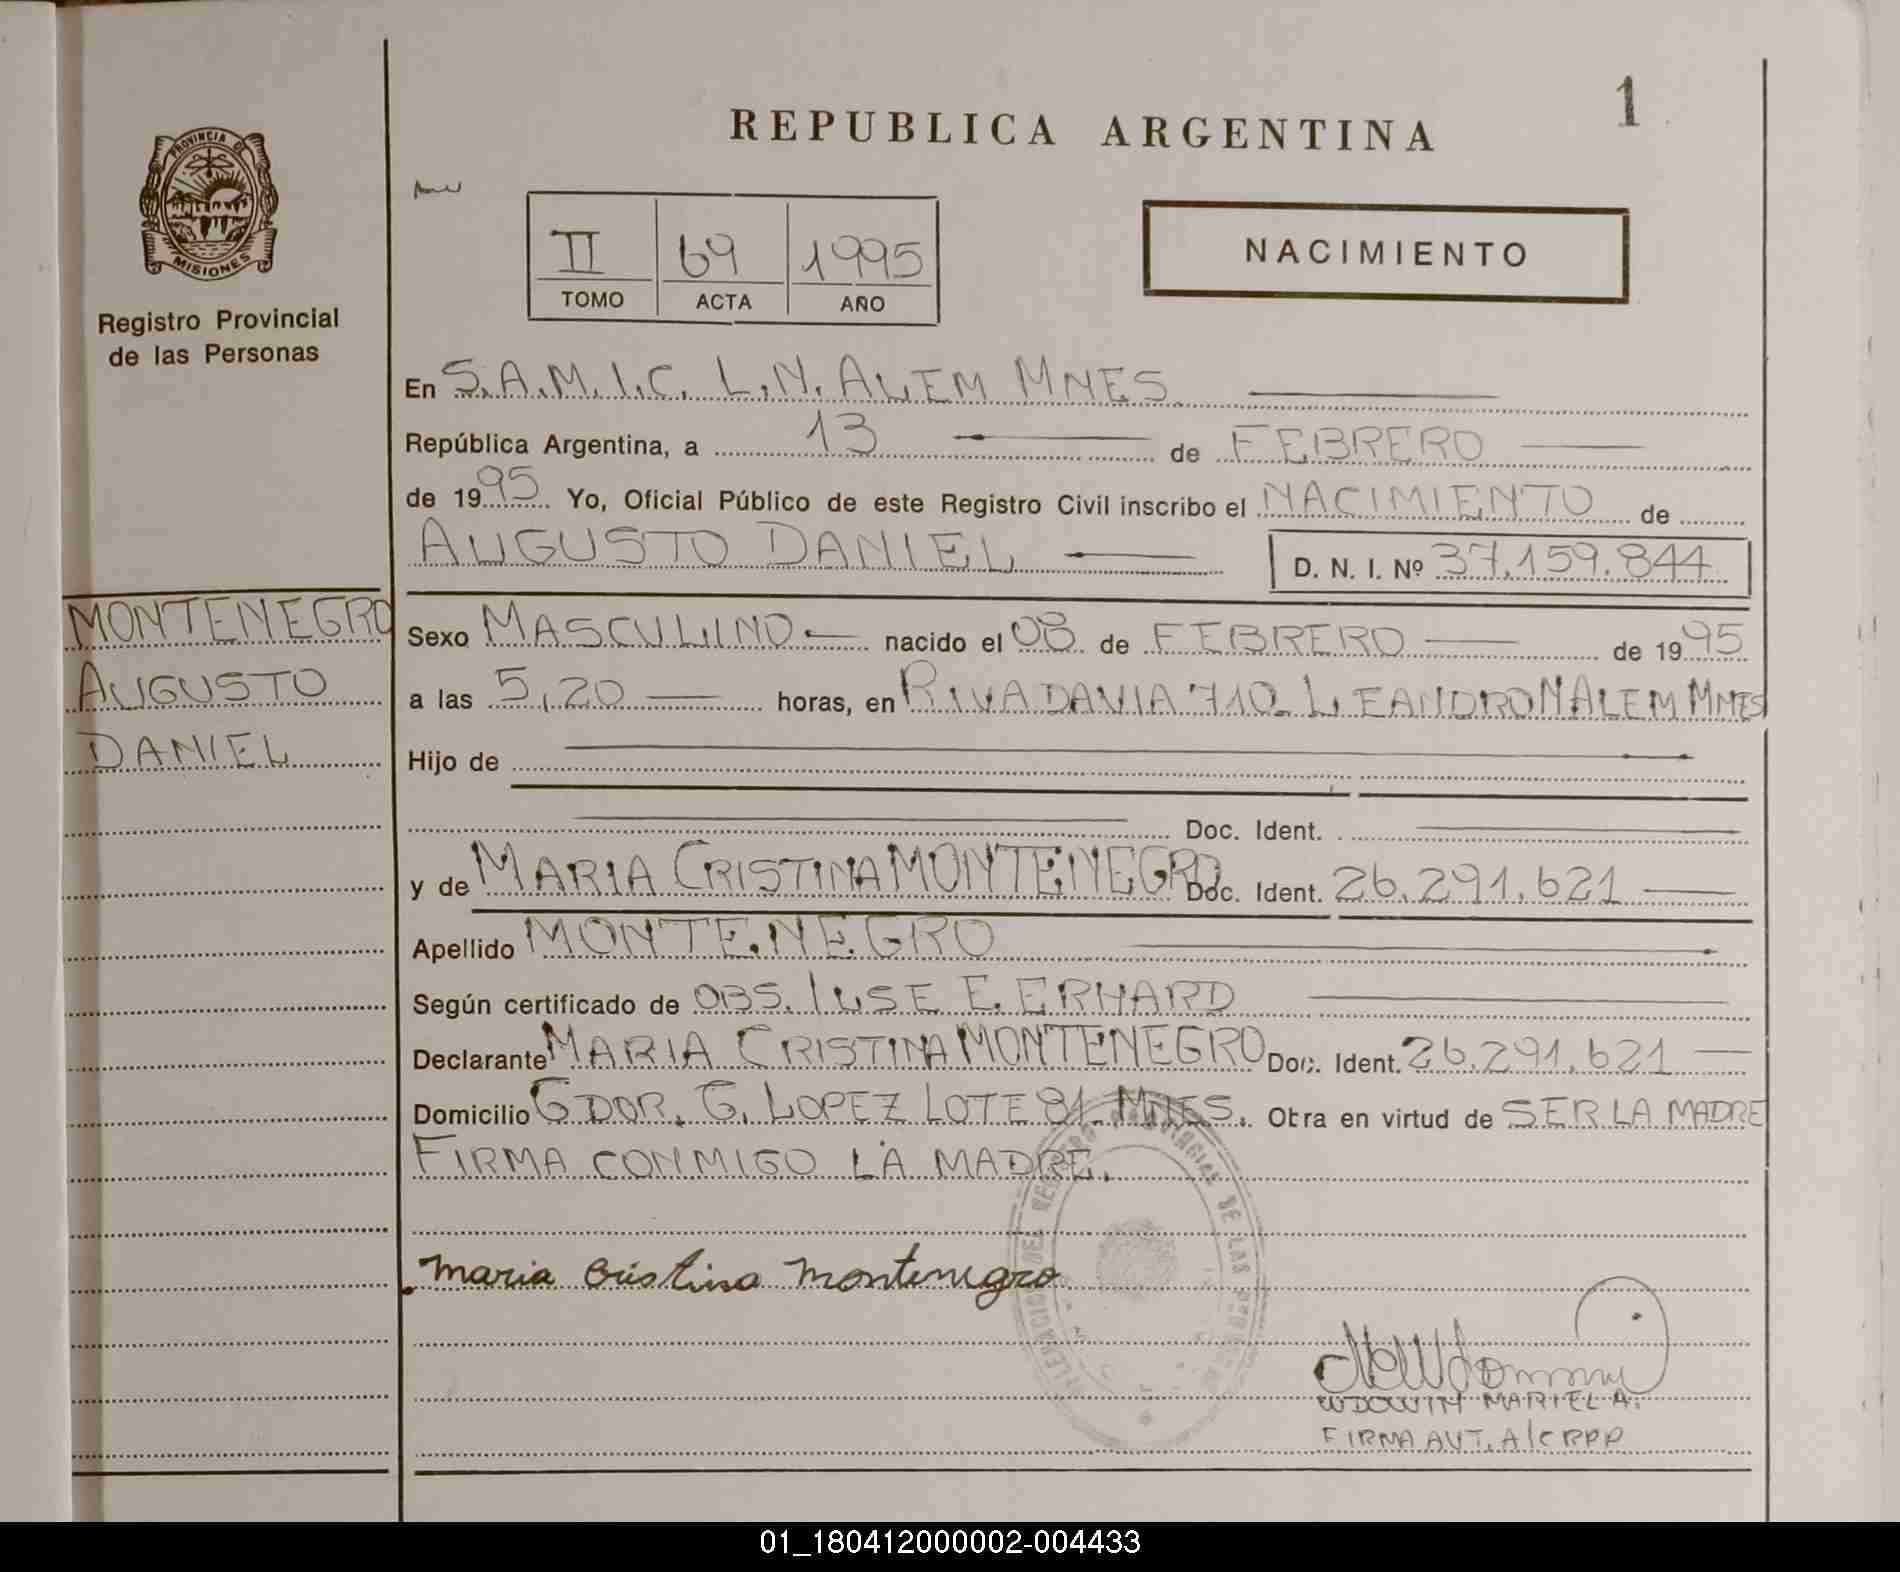 1
REPUBLICA ARGENTINA
PROVINCIA DE
MISIONES
Registro Provincial
de las Personas
II 69 1995
TOMO ACTA AÑO
NACIMIENTO
En S.A.M.I.C. L.N. ALEM MNES.
República Argentina, a 13 de FEBRERO
de 1995 Yo, Oficial Público de este Registro Civil inscribo el NACIMIENTO de
AUGUSTO DANIEL D. N. I. Nº 37.159.844
MONTENEGRO
AUGUSTO
DANIEL
Sexo MASCULINO nacido el 08 de FEBRERO de 1995
a las 5,20 horas, en RIVADAVIA 710 LEANDRO N ALEM MNES
Hijo de
Doc. Ident.
y de MARIA CRISTINA MONTENEGRO Doc. Ident. 26.291.621
Apellido MONTENEGRO
Según certificado de OBS. LUSE E. ERHARD
Declarante MARIA CRISTINA MONTENEGRO Doc. Ident. 26.291.621
Domicilio GDOR. G. LOPEZ LOTE 81 MNES. Obra en virtud de SER LA MADRE
FIRMA CONMIGO LA MADRE.
Maria Cristina Montenegro
WDOWIN MARIEL A.
FIRMA AUT. A/C RPP
01_180412000002-004433